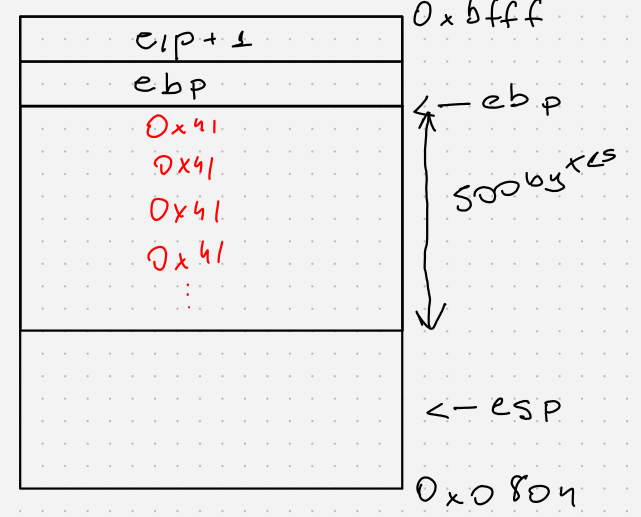 0xbfff
eip+1
ebp
<- ebp
0x41
0x41
0x41
0x41
500bytes
<- esp
0x0804